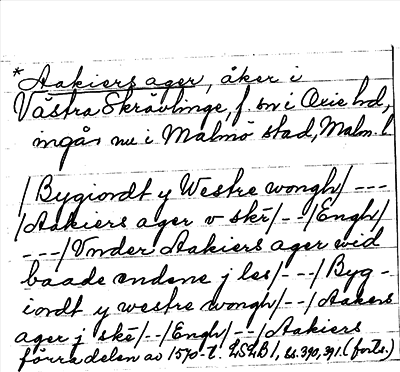 *Aakiers ager, åker i
Västra Skrävlinge, f. sn i Oxie hd,
ingår nu i Malmö stad, Malm. l
/Bygiordt y Westre wongh/ ---
/Aakiers ager v skē/--/Engh/
---/Vnder Aakiers ager wid
baade endene j les/---/Byg-
iordt y westre wongh/--/Aakers
ager j skē/--/Engh/--/Aakiers
förra delen av 1570-t. LSLB 1, ss. 390, 391. (forts.)